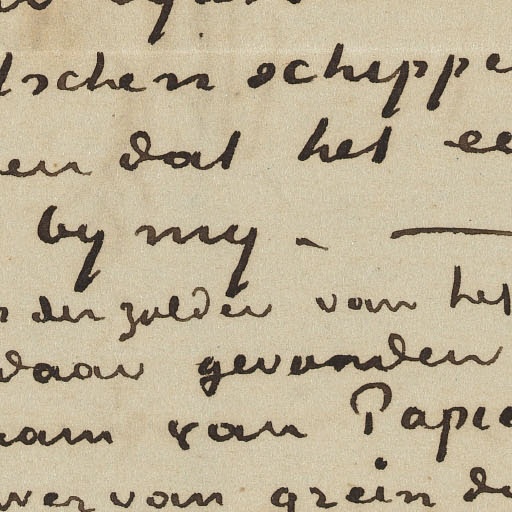 tschen schippe
en dat het ee
by my - —
den zolder van het
daar gevonden
aam van Papie
wer van grein de